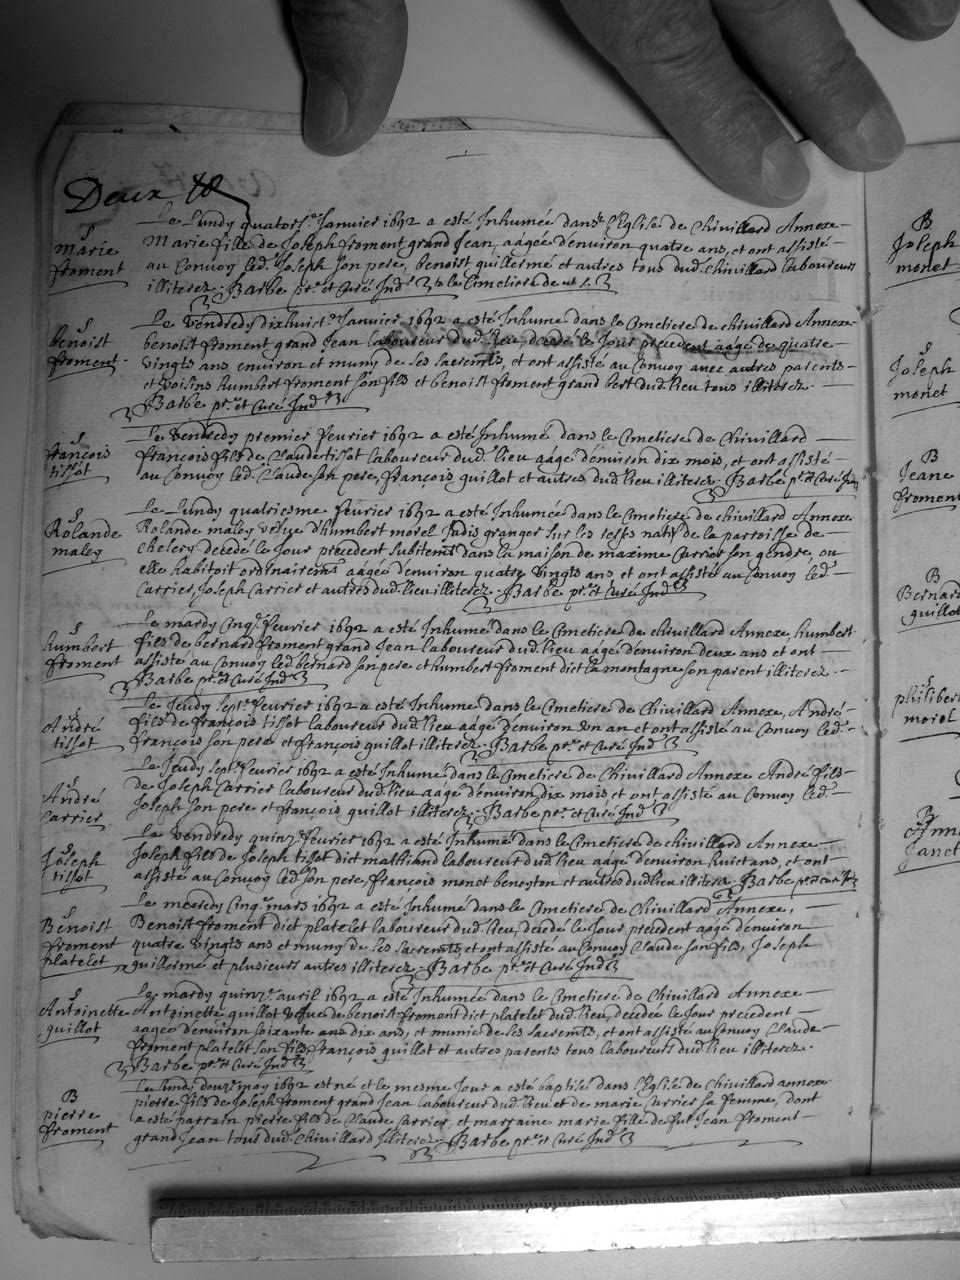 Deux
S
Marie
froment
Le Lundy quatorse Janvier 1692 a esté Inhumée dans l'Eglise de Chivillard Annexe
Marie fille de Joseph froment grand Jean, aagée d'environ quatre ans, et ont assisté
au Convoy led. Joseph son pere, benoist guillermé et autres tous dud. chivillard laboureurs
illiterez. Barbe ptre et Curé Ind.
S
benoist
froment
Le Vendredy dixhuict Janvier 1692 a esté Inhumé dans le Cimetiere de chivillard Annexe
benoist froment grand Jean laboureur dud. lieu, decedé le Jour precedent aagé de quatre
vingts ans environ et muny de ses sacremts, et ont assisté au Convoy avec autres parents
et voisins humbert froment son fils et benoist froment grand bert dud. lieu tous illiterez.
Barbe ptre et Curé Ind
S
françois
tissot
Le Vendredy premier fevrier 1692 a esté Inhumé dans le Cimetiere de Chivillard
françois fils de Claude tissot laboureur dud. lieu aagé d'environ dix mois, et ont assisté
au Convoy led. Claude son pere, françois guillot et autres dud. lieu illiterez. Barbe ptre et Curé Ind
S
Rolande
maley
Le Lundy quatriesme fevrier 1692 a esté Inhumée dans le Cimetiere de chivillard Annexe
Rolande maley vefve d'humbert morel Jadis granger sur les natif de la parroisse de
chelery decedé le Jour precedent subitemt dans la maison de maxime Carrier son gendre, ou
elle habitoit ordinairemt aagée d'environ quatre vingts ans et ont assisté au Convoy led.
Carrier, Joseph Carrier et autres dud. lieu illiterez. Barbe ptre et Curé Ind
S
humbert
froment
Le mardy cinq. fevrier 1692 a esté Inhumé dans le Cimetiere de chivillard Annexe humbert
fils de bernard froment grand Jean laboureur dud. lieu aagé d'environ deux ans et ont
assisté au Convoy led. bernard son pere et humbert froment dict la montagne son parent illiterez.
Barbe ptre et Curé Ind
S
André
tissot
Le Jeudy sept. fevrier 1692 a esté Inhumé dans le Cimetiere de Chivillard Annexe, André
fils de françois tissot laboureur dud. lieu aagé d'environ un an et ont assisté au Convoy led.
françois son pere et françois guillot illiterez. Barbe ptre et Curé Ind
S
André
Carrier
Le Jeudy sept. fevrier 1692 a esté Inhumé dans le Cimetiere de Chivillard Annexe André fils
de Joseph Carrier laboureur dud. lieu aagé d'environ dix mois et ont assisté au Convoy led.
Joseph son pere et françois guillot illiterez. Barbe ptre et Curé Ind
S
Joseph
tissot
Le Vendredy quinz. fevrier 1692 a esté Inhumé dans le Cimetiere de Chivillard Annexe
Joseph fils de Joseph tissot dict laboureur dud. lieu aagé d'environ huict ans, et ont
assisté au Convoy led. son pere, françois monet beneyton et autres dud. lieu illiterez. Barbe ptre et Curé Ind
S
Benoist
froment
platelet
Le mecredy cinq. mars 1692 a esté Inhumé dans le Cimetiere de Chivillard Annexe,
Benoist froment dict platelet laboureur dud. lieu, decedé le Jour precedent aagé d'environ
quatre vingts ans et muny de ses sacremts, et ont assisté au Convoy Claude son fils, Joseph
guillermé et plusieurs autres illiterez. Barbe ptre et Curé Ind
S
Antoinette
guillot
Le mardy quinz. avril 1692 a esté Inhumée dans le Cimetiere de Chivillard Annexe
Antoinette guillot vefve de benoist froment dict platelet dud. lieu, decedée le Jour precedent
aagée d'environ soixante dix ans, et munie de ses sacremts, et ont assisté au Convoy Claude
froment platelet son fils, françois guillot et autres parents tous laboureurs dud. lieu illiterez.
Barbe ptre et Curé Ind
B
pierre
froment
Le Lundy douz. may 1692 est né et le mesme Jour a esté baptisé dans l'Eglise de Chivillard annexe
pierre fils de Joseph froment grand Jean laboureur dud. lieu et de marie Carrier sa femme, dont
a esté parrain pierre fils de Claude Carrier, et marraine marie fille de fut Jean froment
grand Jean tous dud. Chivillard illiterez. Barbe ptre et Curé Ind
B
Joseph
monet
S
Joseph
monet
B
Jeane
froment
B
Bernard
guillot
S
philibert
morel
B